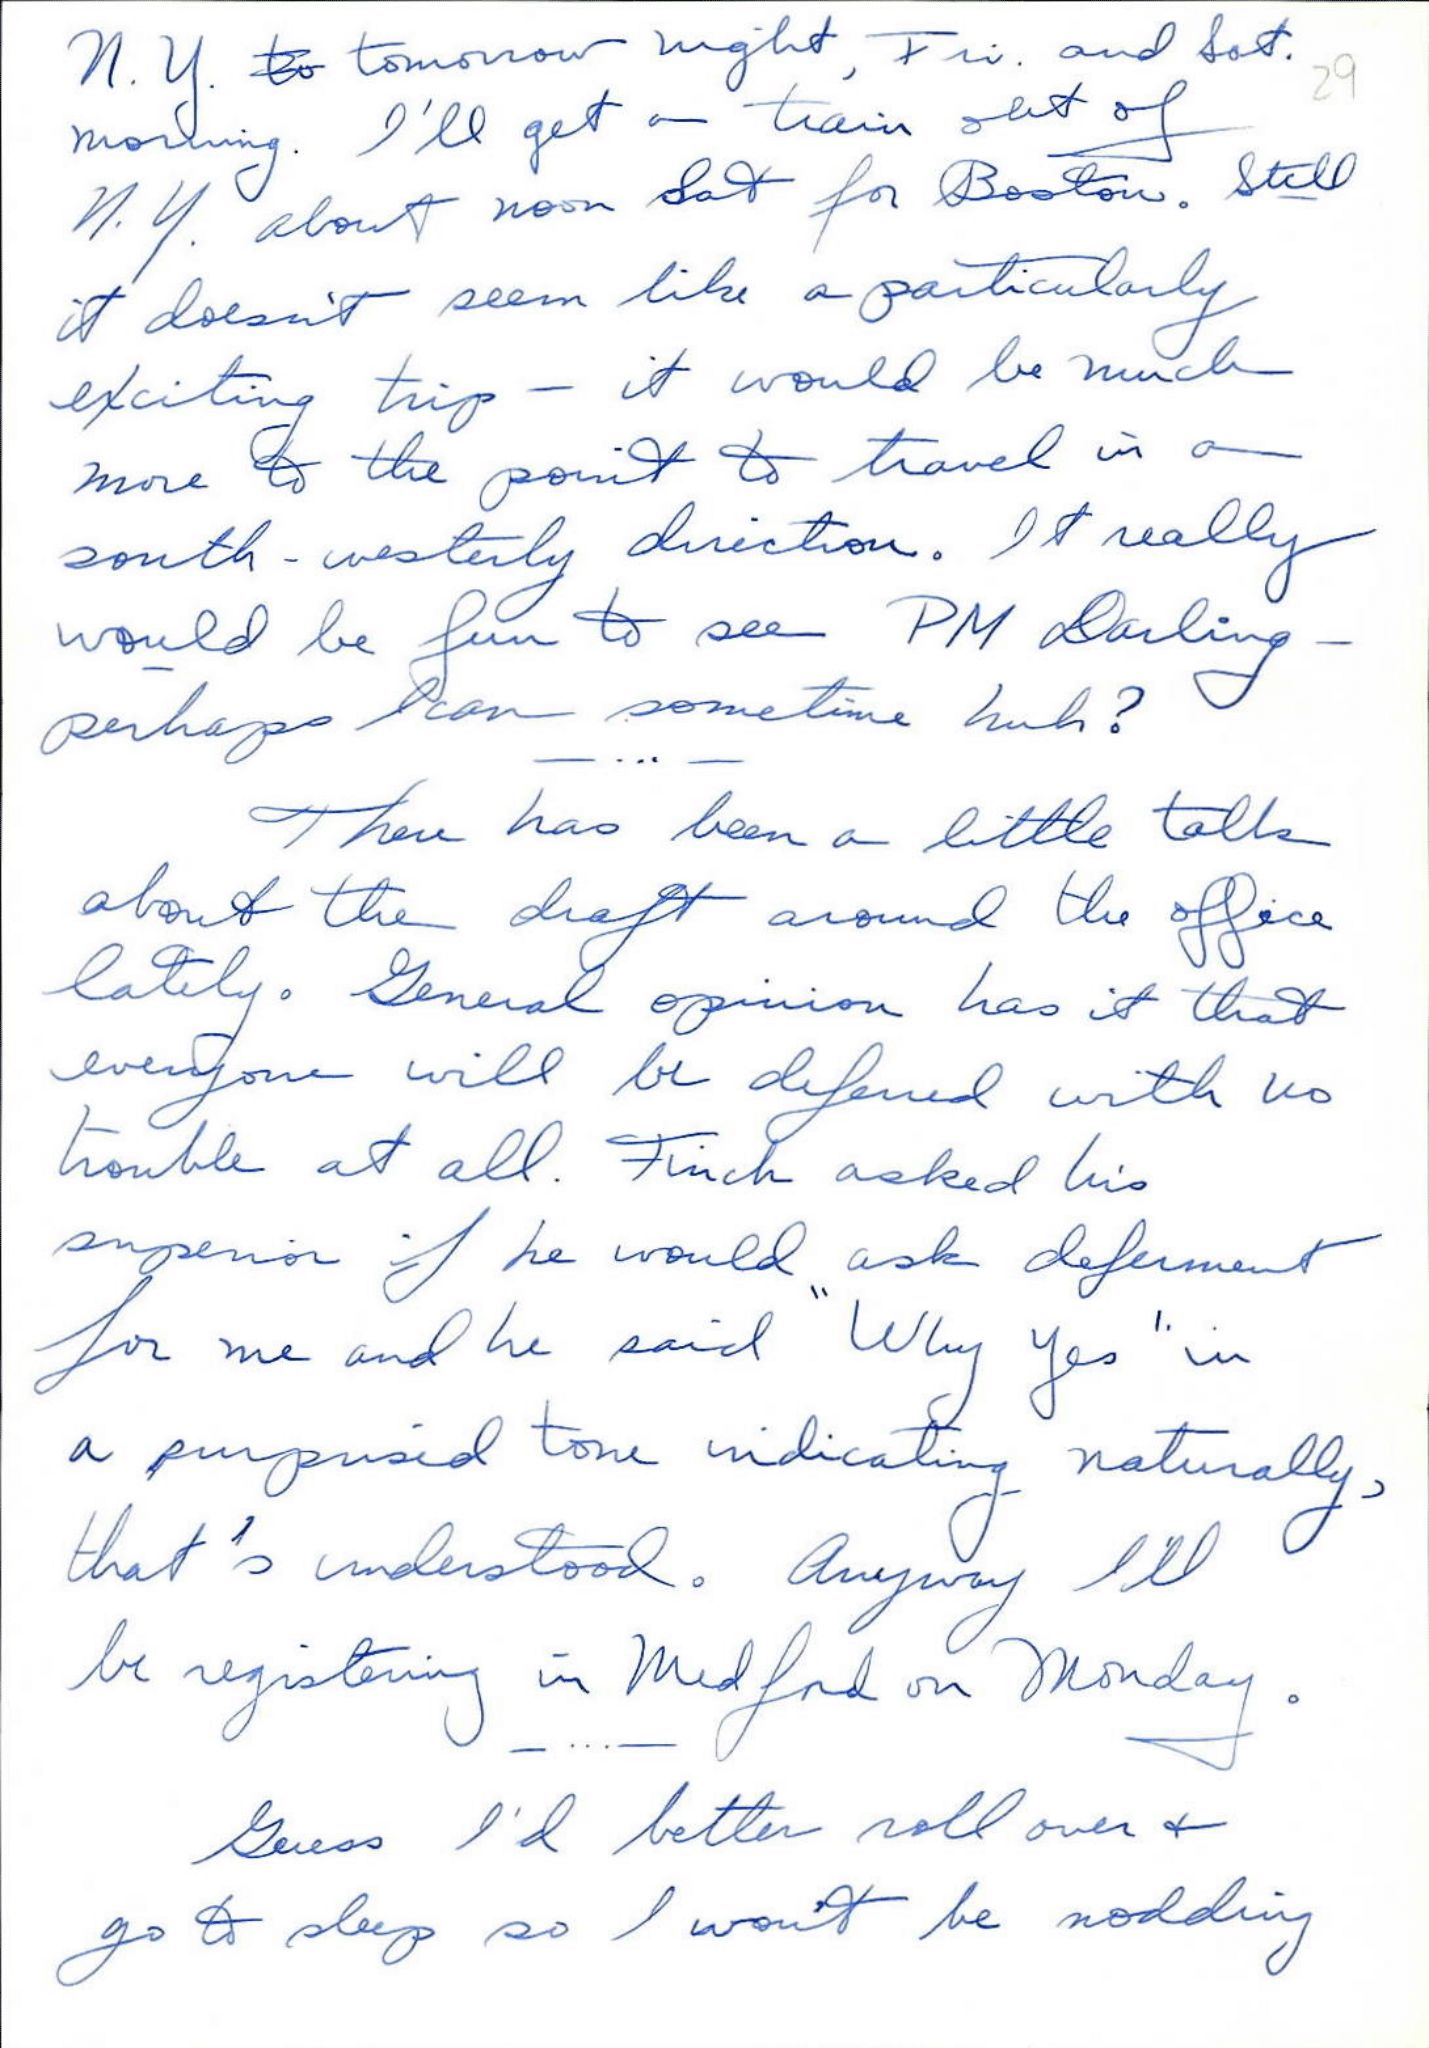 N.Y. to tomorrow night, Fri. and Sat.
29
morning. I'll get a train out of
N.Y. about noon Sat for Boston. Still
it doesn't seem like a particularly
exciting trip – it would be much
more to the point to travel in a
south-westerly direction. It really
would be fun to see PM Darling –
perhaps I can sometime huh?
— ... —
There has been a little talk
about the draft around the office
lately. General opinion has it that
everyone will be deferred with no
trouble at all. Finch asked his
superior if he would ask deferment
for me and he said "Why Yes" in
a purprised tone indicating naturally,
that's understood. Anyway I'll
be registering in Medford on Monday.
— ... —
Guess I'd better roll over &
go to sleep so I won't be nodding